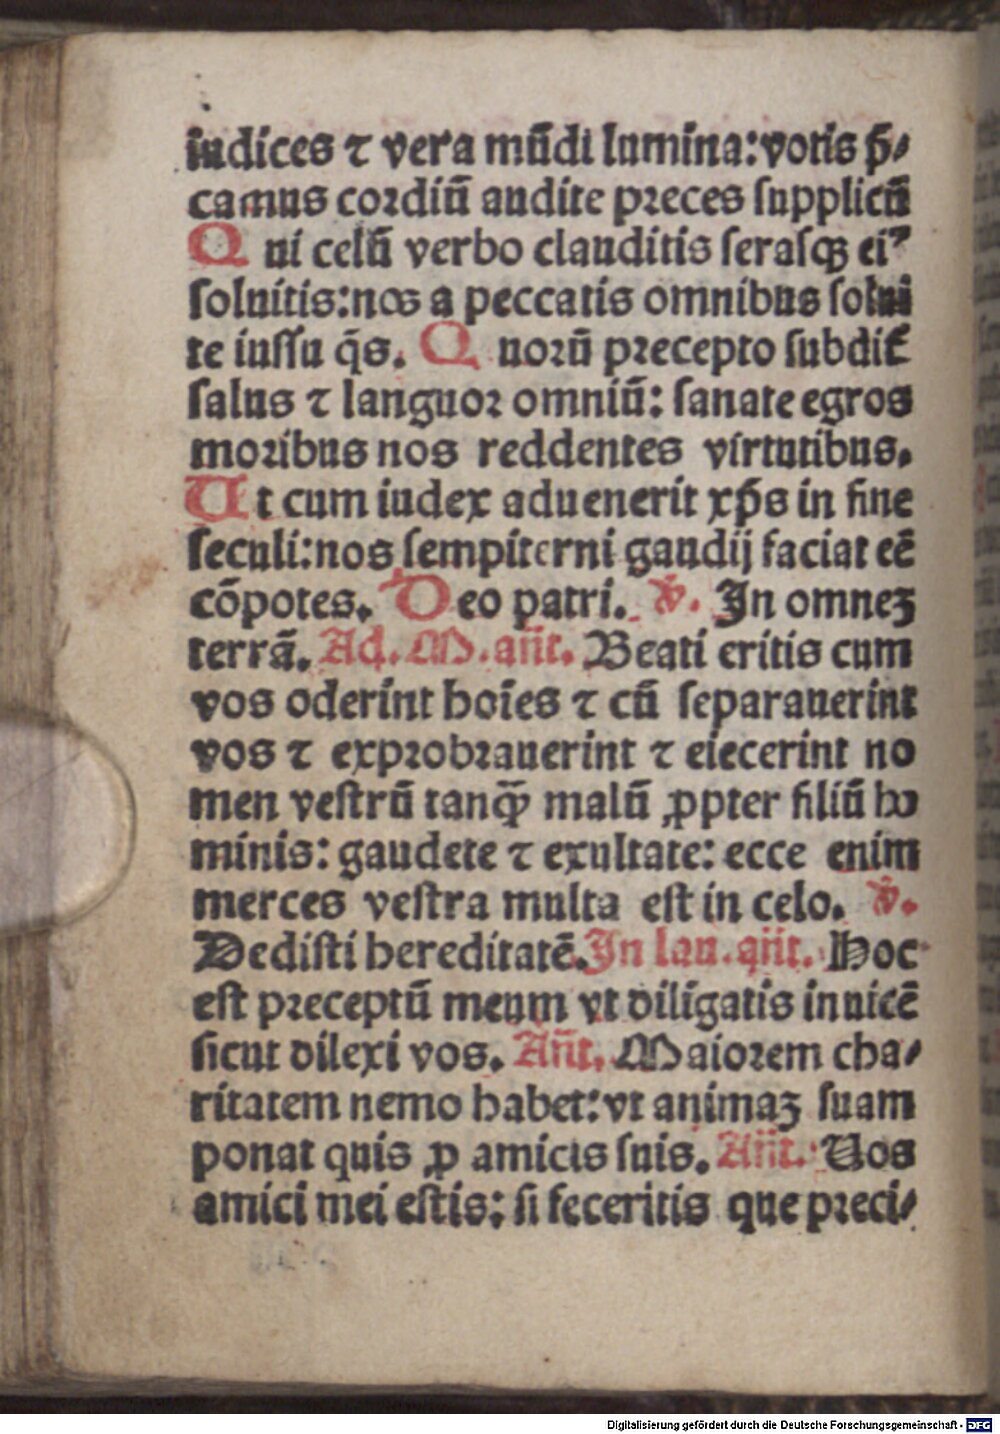 iudices ⁊ vera mūdi lumina: votis p̄⸗
camus cordiū audite preces supplicū
Q ui celū verbo clauditis serasqꝫ ei⁹
soluitis: nos a peccatis omnibus solui
te iussu q̄s. Q uorū precepto subdit̄
salus ⁊ languor omniū: sanate egros
moribus nos reddentes virtutibus.
U t cum iudex aduenerit xp̄s in fine
seculi: nos sempiterni gaudij faciat eē
cōpotes. D eo patri. ℣. In omneꝫ
terrā. Ad. M. an̄t. Beati eritis cum
vos oderint hoīes ⁊ cū separauerint
vos ⁊ exprobrauerint ⁊ eiecerint no
men vestrū tanqȝ̄ malū ꝓpter filiū ho
minis: gaudete ⁊ exultate: ecce enim
merces vestra multa est in celo. ℣.
Dedisti hereditatē. In lau. an̄t. Hoc
est preceptū meum vt diligatis inuicē
sicut dilexi vos. An̄t. Maiorem cha⸗
ritatem nemo habet: vt animaꝫ suam
ponat quis ꝓ amicis suis. An̄t. Uos
amici mei estis: si feceritis que preci⸗
Digitalisierung gefördert durch die Deutsche Forschungsgemeinschaft - DFG